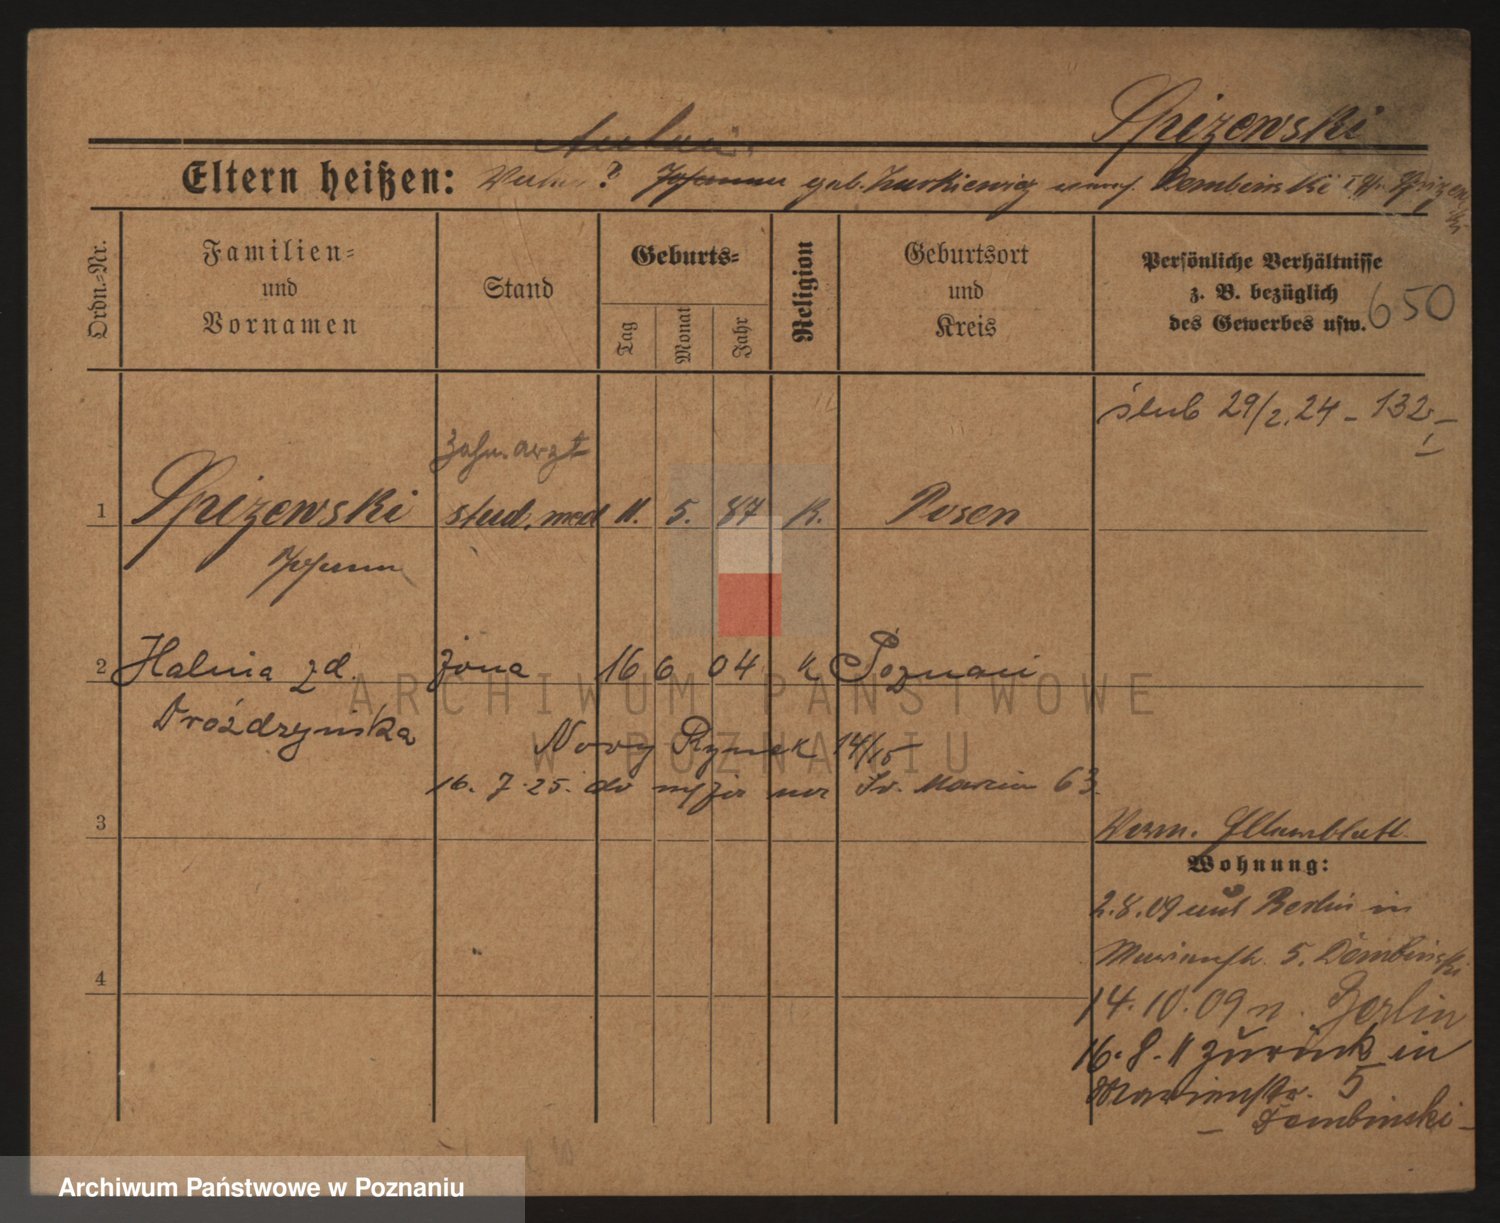 Spizewski
Eltern heißen: Vater? geb. Dombinski
Ordn.-Nr.
Familien-
und
Vornamen
Stand
Geburts-
Tag
Monat
Jahr
Religion
Geburtsort
und
Kreis
Persönliche Verhältnisse
z. B. bezüglich
des Gewerbes usw.
650
ślub 29/2.24 - 132
Zahnarzt
1 Spizewski stud. med 11. 5. 87 K. Posen
Johann
2 Halina zd. żona 16 6 04 K Poznań
Drożdzyńska
Nowy Rynek 14/15
16. 7. 25. do Św. Marcin 63.
3
Wohnung:
2.8.09 aus Berlin in
Marienstr. 5. Dombinski
4
14.10.09 n. Berlin
16.8.11 zurück in
Marienstr. 5
- Dombinski -
ARCHIWUM PAŃSTWOWE
W POZNANIU
Archiwum Państwowe w Poznaniu